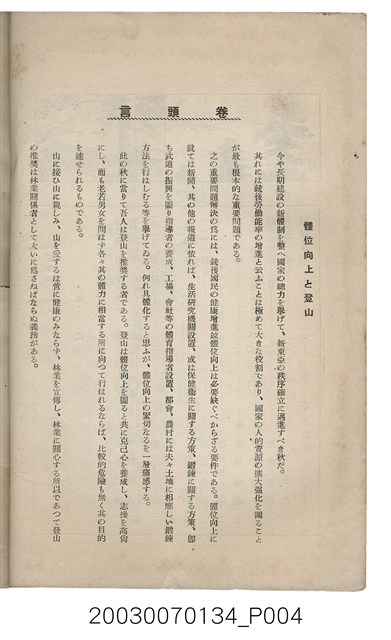 卷頭言
體位向上と登山
今や長期建設の新體制を整へ國家の總力を擧げて、新東亞の秩序確立に邁進すべき秋だ。
其れには銃後勞働能率の增進と云ふことは極めて大きな役割であり、國家の人的資源の擴大强化を圖ること
が最も根本的な重要問題である。
之の重要問題解決の爲には、銃後國民の健康增進並體位向上は必要缺ぐべからざる要件である。體位向上に
就ては新聞、其の他の報道に依れば、生活硏究機關設置、或は保健衞生に關する方策、鍛鍊に關する方策、卽
ち武道の振興を圖り指導者の養成、工場、會社等の體育指導者設置、都會、農村には夫々土地に相應しい鍛鍊
方法を行はしむる等を擧げてゐる。何れ具體化すると思ふが、體位向上の緊切なるを一層痛感する。
此の秋に當りて吾人は登山を推奬する者である。登山は體位向上を圖ると共に克己心を養成し、志操を高尙
にし、而も老若男女を問はず各々其の體力に相當する所に向つて行はれるならば、比較的危險も無く其の目的
を達せられるものである。
山に接ひ山に親しみ、山を愛するは啻に健康のみならず、林業を宣傳し、林業に關心する所以であつて登山
の推奬は林業關係者として大いに爲さねばならぬ義務がある。
20030070134_P004